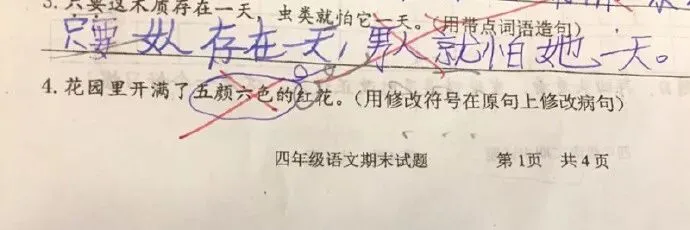 3.只要这木质存在一天，虫类就怕它一天。（用带点词语造句）
只要女人存在一天，男人就怕她一天。
4.花园里开满了五颜六色的红花。（用修改符号在原句上修改病句）
四年级语文期末试题 第1页 共4页